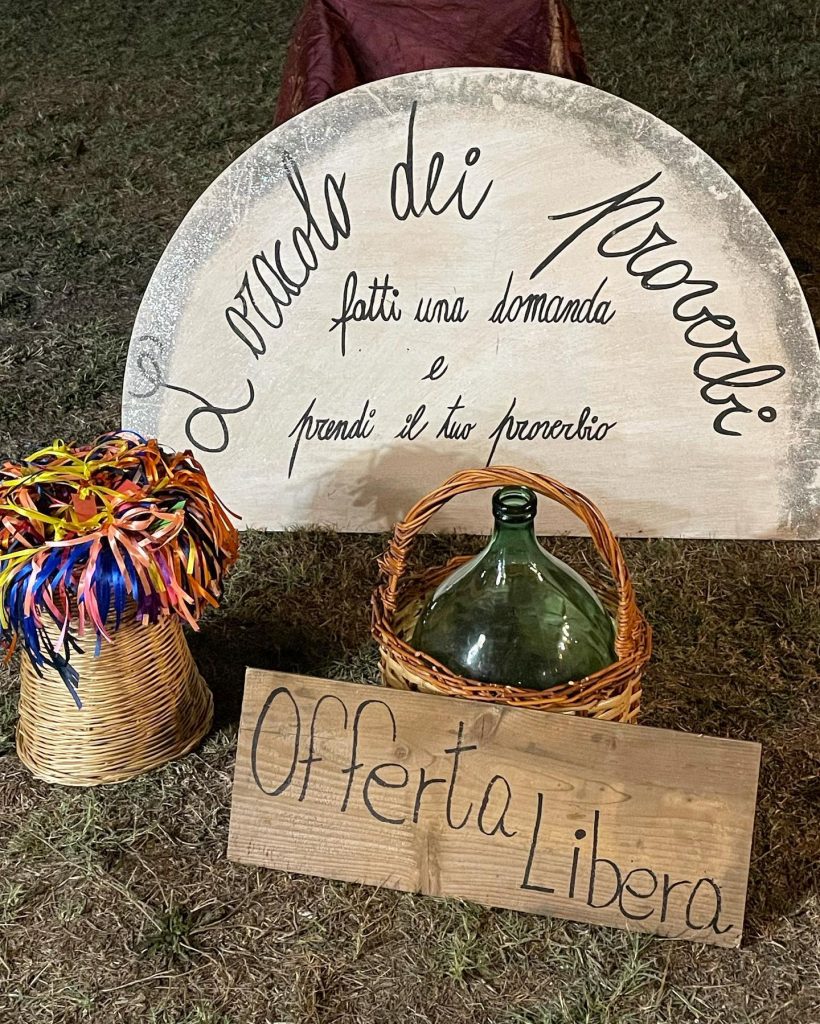 L'oracolo dei proverbi
fatti una domanda
e
prendi il tuo proverbio
Offerta Libera